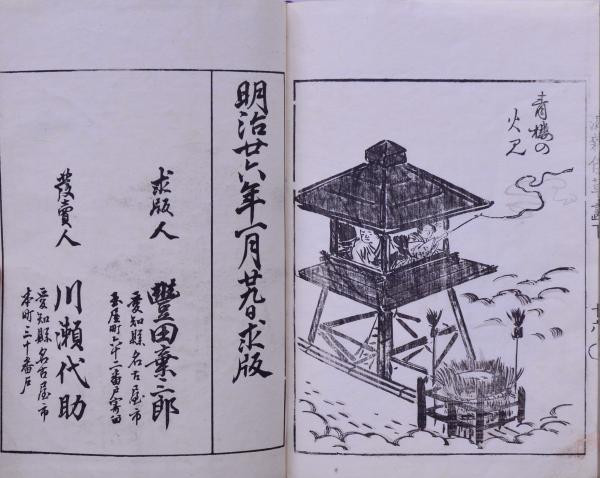 青樓の
火見
明治廿六年一月廿九日求版
求版人
愛知縣名古屋市
玉屋町六十二番戸寄留
豐田棄三郎
發賣人
愛知縣名古屋市
本町三十番戸
川瀬代助